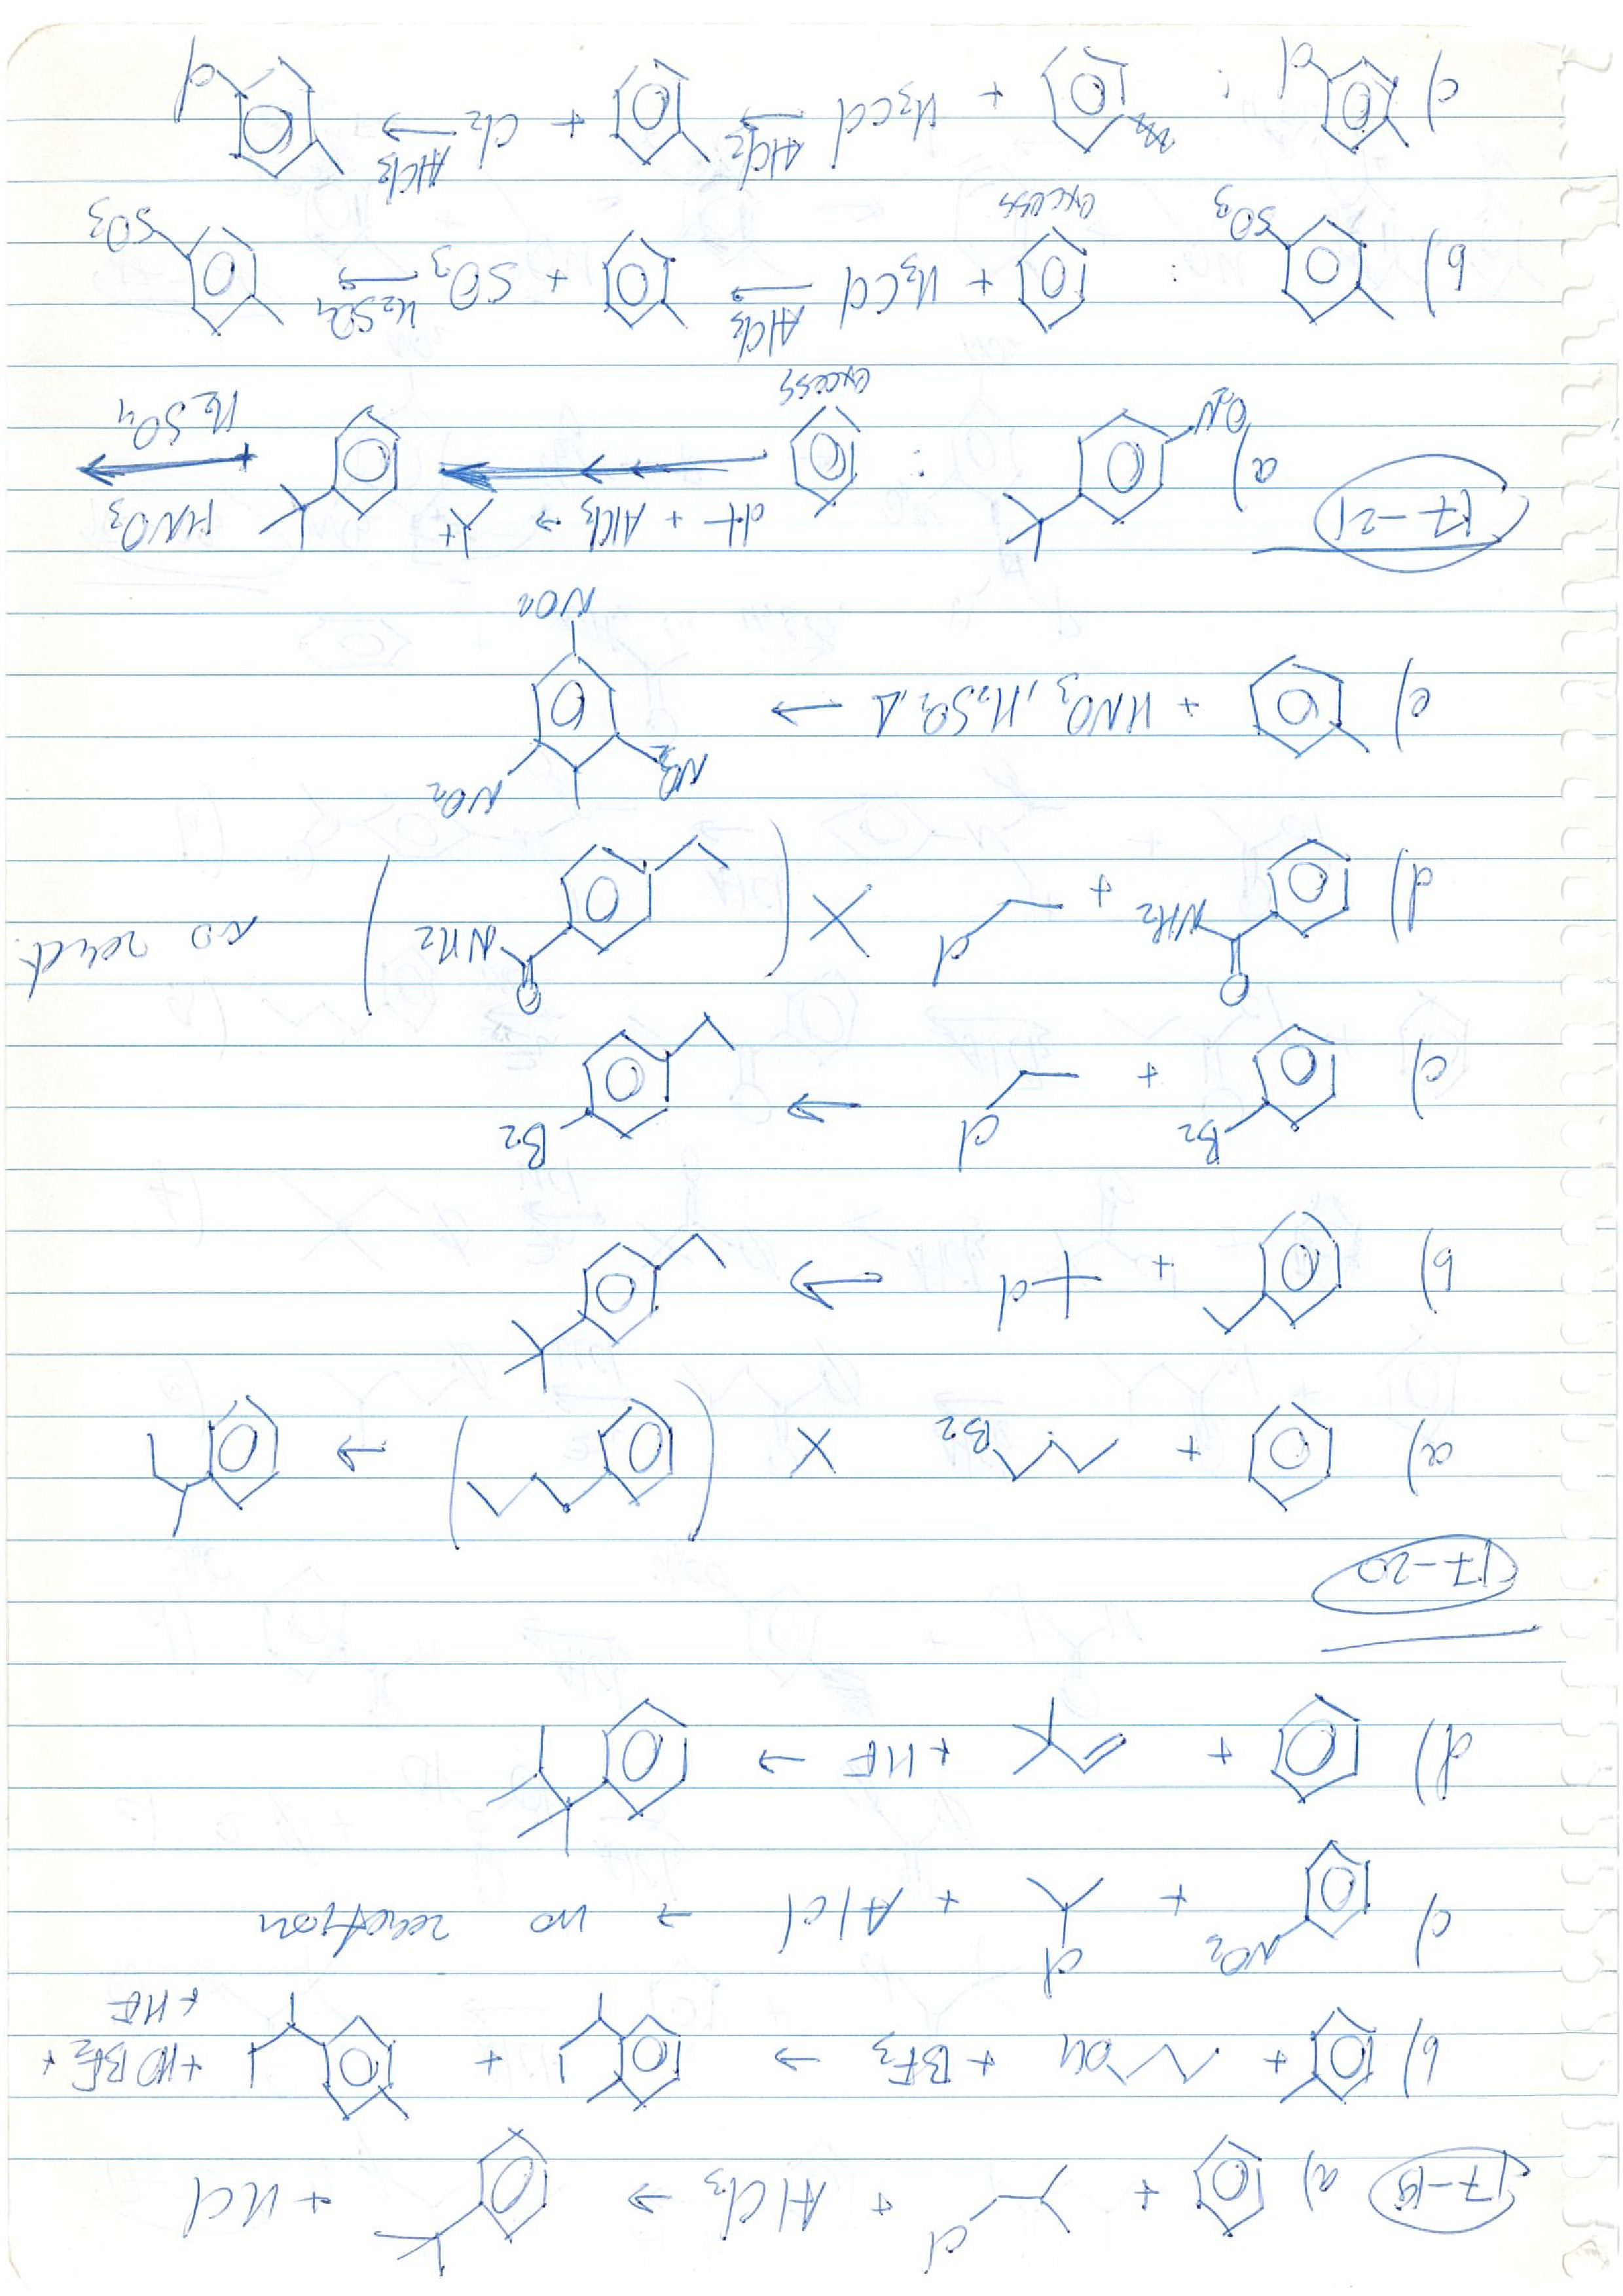 17-19 a) + Cl + AlCl3 → + HCl
b) + OH + BF3 → + + HOBF2 +
+ HF
c) NO2 + Cl + AlCl → no reaction
d) + + HF →
17-20
a) + Br X ( ) →
b) + Cl →
c) Br + Cl → Br
d) O NH2 + Cl X ( O NH2 ) no react.
e) + HNO3, H2SO2 Δ → NO2 NO2 NO2
17-21 a) O2N : Cl + AlCl3 → + → HNO3
excess H2SO4
b) SO3 : + H3CCl AlCl3 → + SO3 H2SO4 → SO3
excess
c) Cl : + H3CCl AlCl3 → + Cl2 AlCl3 → Cl